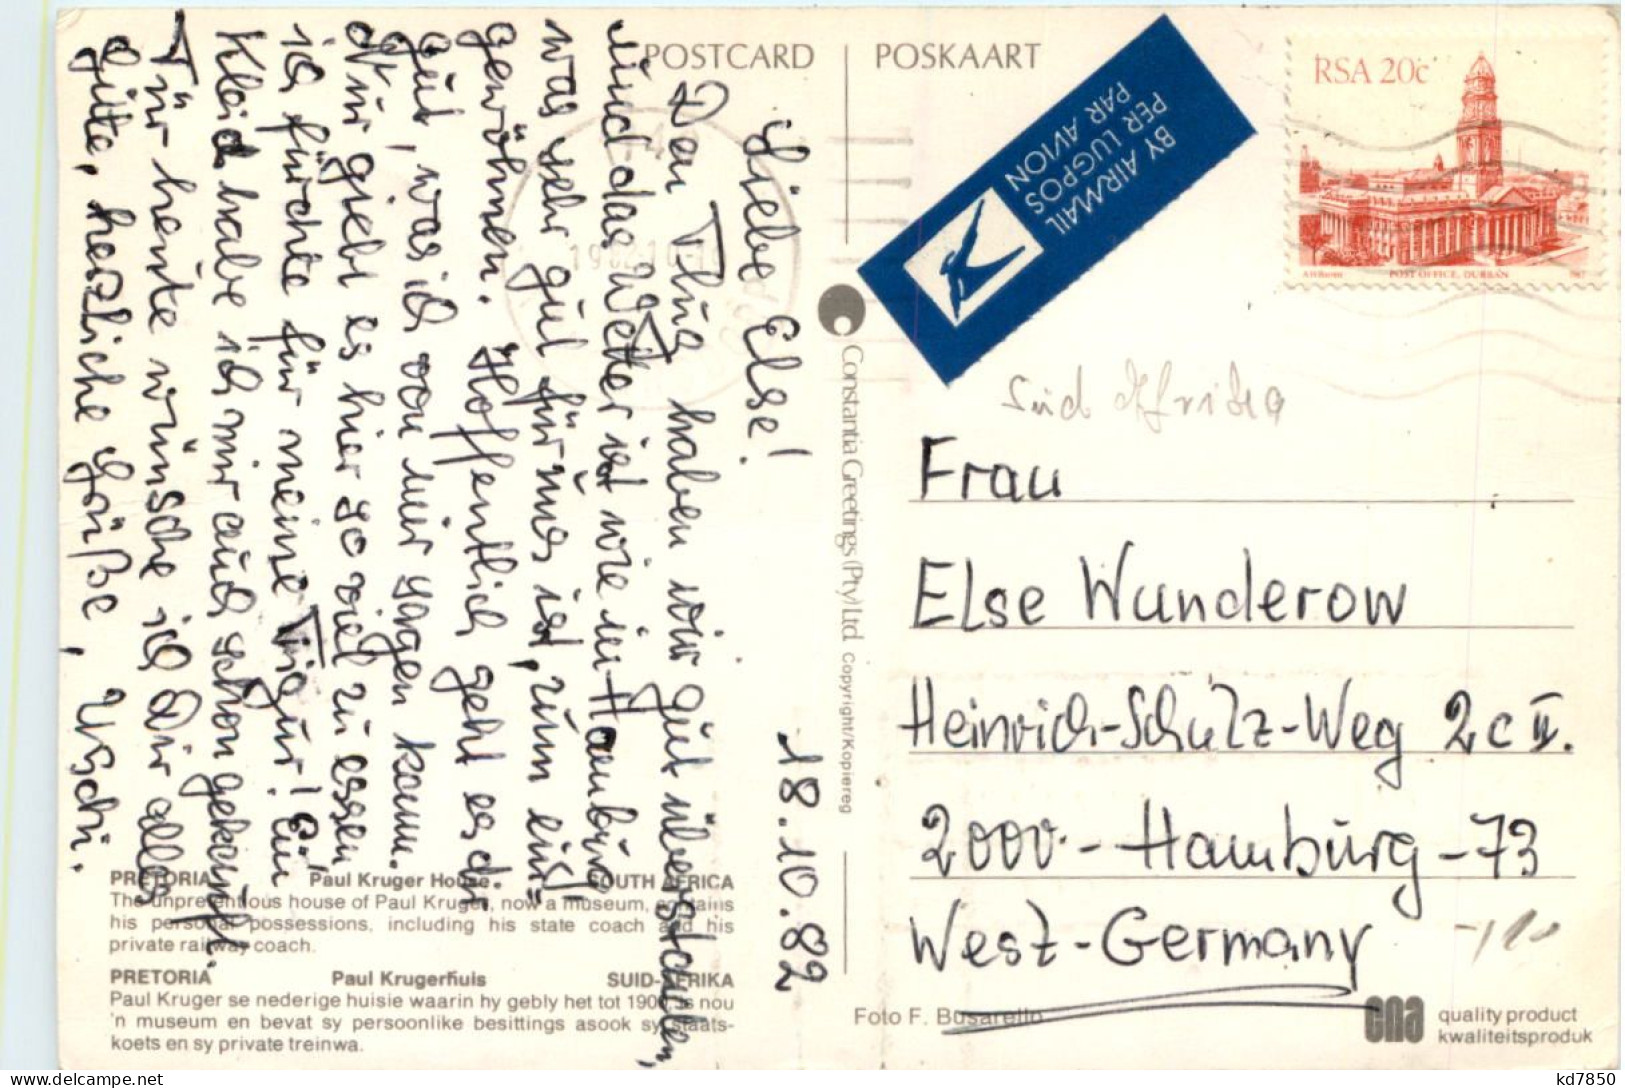 POSTCARD
POSKAART
BY AIRMAIL
PER LUGPOS
PAR AVION
RSA 20c
POST OFFICE, DURBAN
18.10.82
Liebe Else!
Den Flug haben wir gut überstanden,
und das Wetter ist wie in Hamburg
was sehr gut für uns ist, zum ein=
gewöhnen. Hoffentlich geht es dir
gut, was ich von mir sagen kann.
Nur giebt es hier so viel zu essen
ich fürchte für meine Figur! ein
Kleid habe ich mir auch schon gekauft.
Für heute wünsche ich Dir alles
Gute, herzliche Grüße, Uschi.
Constantia Greetings (Pty) Ltd. Copyright/Kopiereg
Süd Afrika
Frau
Else Wunderow
Heinrich-Schulz-Weg 2c II.
2000.-Hamburg-73
West-Germany
PRETORIA Paul Kruger House. SOUTH AFRICA
The unpretentious house of Paul Kruger, now a museum, contains
his personal possessions, including his state coach and his
private railway coach.
PRETORIA Paul Krugerhuis SUID-AFRIKA
Paul Kruger se nederige huisie waarin hy gebly het tot 1900 is nou
'n museum en bevat sy persoonlike besittings asook sy staats-
koets en sy private treinwa.
Foto F. Busarello
cna quality product
kwaliteitsproduk
kd7850